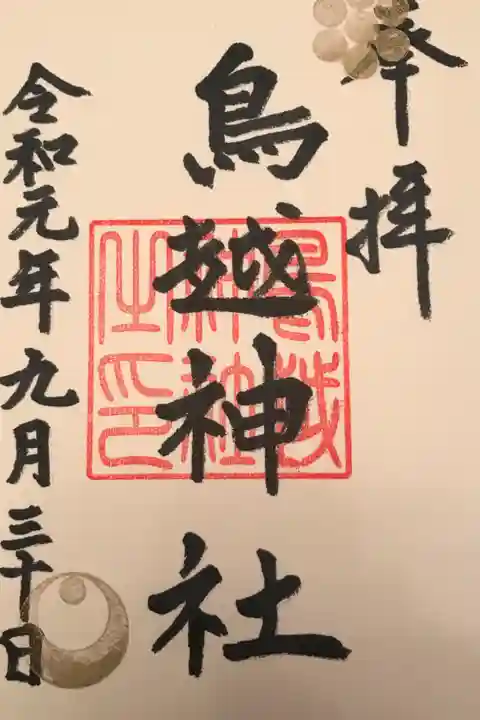 奉拝
鳥越神社
鳥越
神社
之印
令和元年九月三十日